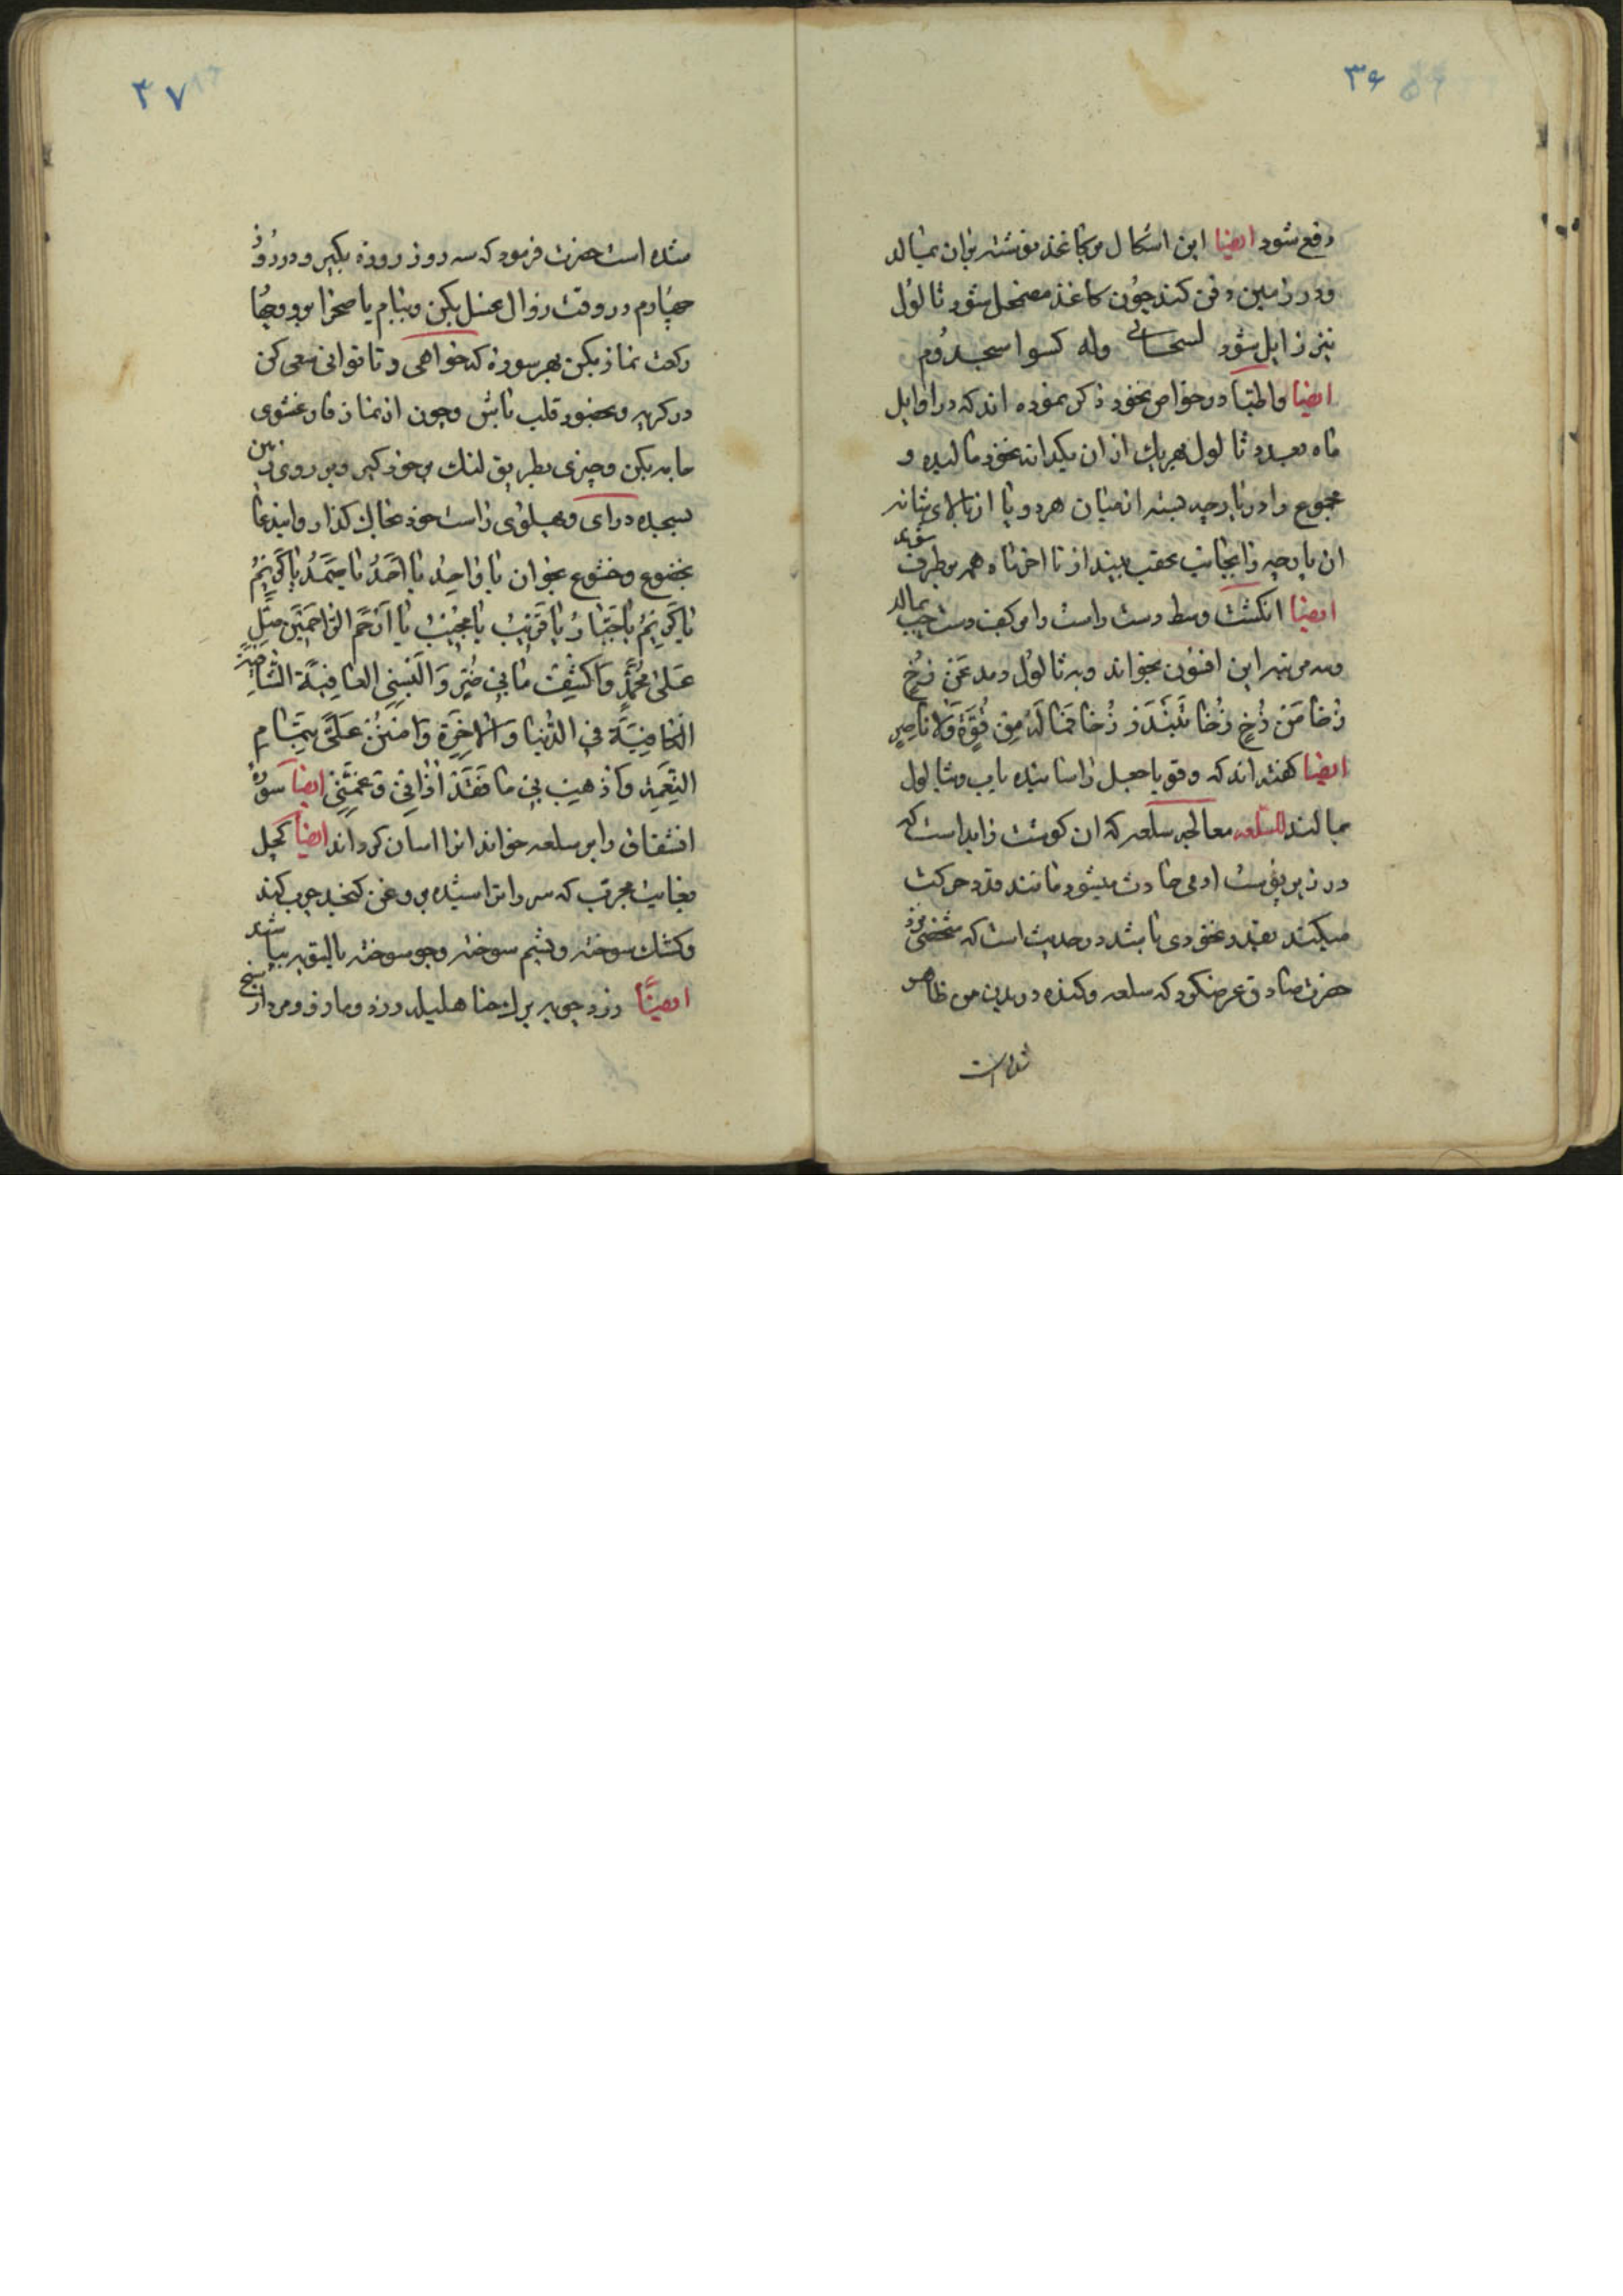 ۳۶
دفع شود ایضا این اشکال بر کاغذ نوشته بران بمالد
و در زمین دفن کند چون کاغذ مضمحل شود ثالول
نیز زایل شود وله
ایضا و اطبا در خواص نخود ذکر نموده اند که در اوایل
ماه بعدد ثالول هر یک از ان یکدانه نخود مالیده و
مجموع را در پارچه بسته از میان هر دو پا از بالای شانه
ان پارچه را بجانب عقب بیندازد تا اخر ماه همه بر طرف شود
ایضا انکشت وسط دست راست را بر کف دست چپ بمالد
و سه مرتبه این افسون بخواند و به ثالول دمد
فما له من قوة ولا ناصر
ایضا کفته اند که بثالول
بمالند للسلعه معالجه سلعه که ان کوشت زاید است که
در زیر پوست ادمی حادث میشود مانند غدد حرکت
میکند بقدر نخودی باشد در حدیث است که شخصی نزد
حضرت صادق عرض کرد که سلعه و کنده در بدن من ظاهر
شده است
۳۷
شده است حضرت فرمود که سه روز روزه بکیر و در روز
چهارم در وقت زوال غسل بکن و ببام یا صحرا برو و چهار
رکعت نماز بکن بهر سوره که خواهی و تا توانی سعی کن
در کریه و بحضور قلب باش و چون از نماز فارغ شوی
جامه بکن و چیزی بطریق لنک بر خود کیر و بر روی زمین
بسجده درای و پهلوی راست خود بخاک کذار و ایندعا
بخضوع و خشوع بخوان یا وَاحِدُ یا اَحَدُ یا صَمَدُ یا کَرِیمُ
یا کَرِیمُ یا جَبّارُ یا قَرِیبُ یا مُجِیبُ یا اَرْحَمَ الرّاحِمِینَ صَلِّ
عَلی مُحَمَّدٍ وَاکْشِفْ مابی مِنْ ضُرٍّ وَاَلْبِسْنِی العافِیَةَ الشّافِیَةَ
الکافِیَةَ فِی الدُّنیا وَالاخِرَةِ وَامْنُنْ عَلَیَّ بِتَمامِ
النِّعْمَةِ وَاَذْهِبْ بِی ما فَقَدْ اَذانِی وَ غَمَّنِی ایضا سوره
انشقاق را بر سلعه خواند انرا اسان کرداند ایضا کچل
بغایت مجرب که سر را تراشیده بروغن کنجد چرب کند
و کشک سوخته و پشم سوخته و جو سوخته بالسویه بپاشد
ایضا زردچوبه برک حنا هلیله زرد و مازو و مردارسنج